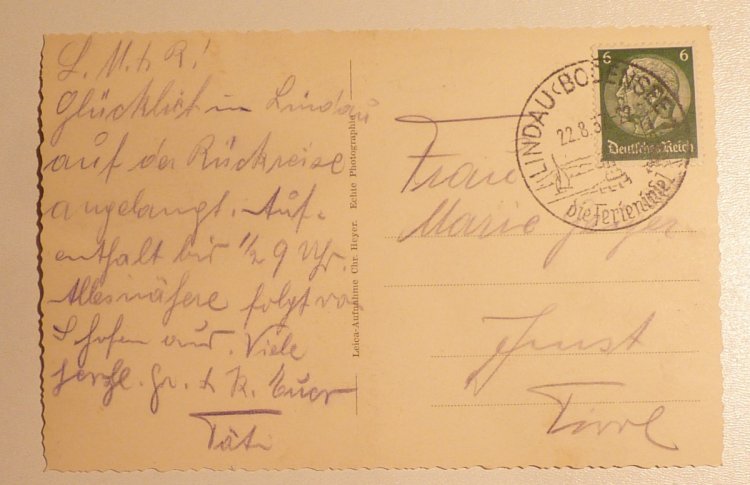 L. M. &. R.!
Glücklich in Lindau
auf der Rückreise
angelangt. Auf-
enthalt bis 1/2 9 Uhr.
Alles nähere folgt von
hofen aus. Viele
herzl. Gr. & K. Euer
Täti
Leica-Aufnahme Chr. Heyer. Echte Photographie
6 6
Deutsches Reich
LINDAU (BODENSEE)
22.8.3
die Ferieninsel
Frau
Marie
Imst
Tirol